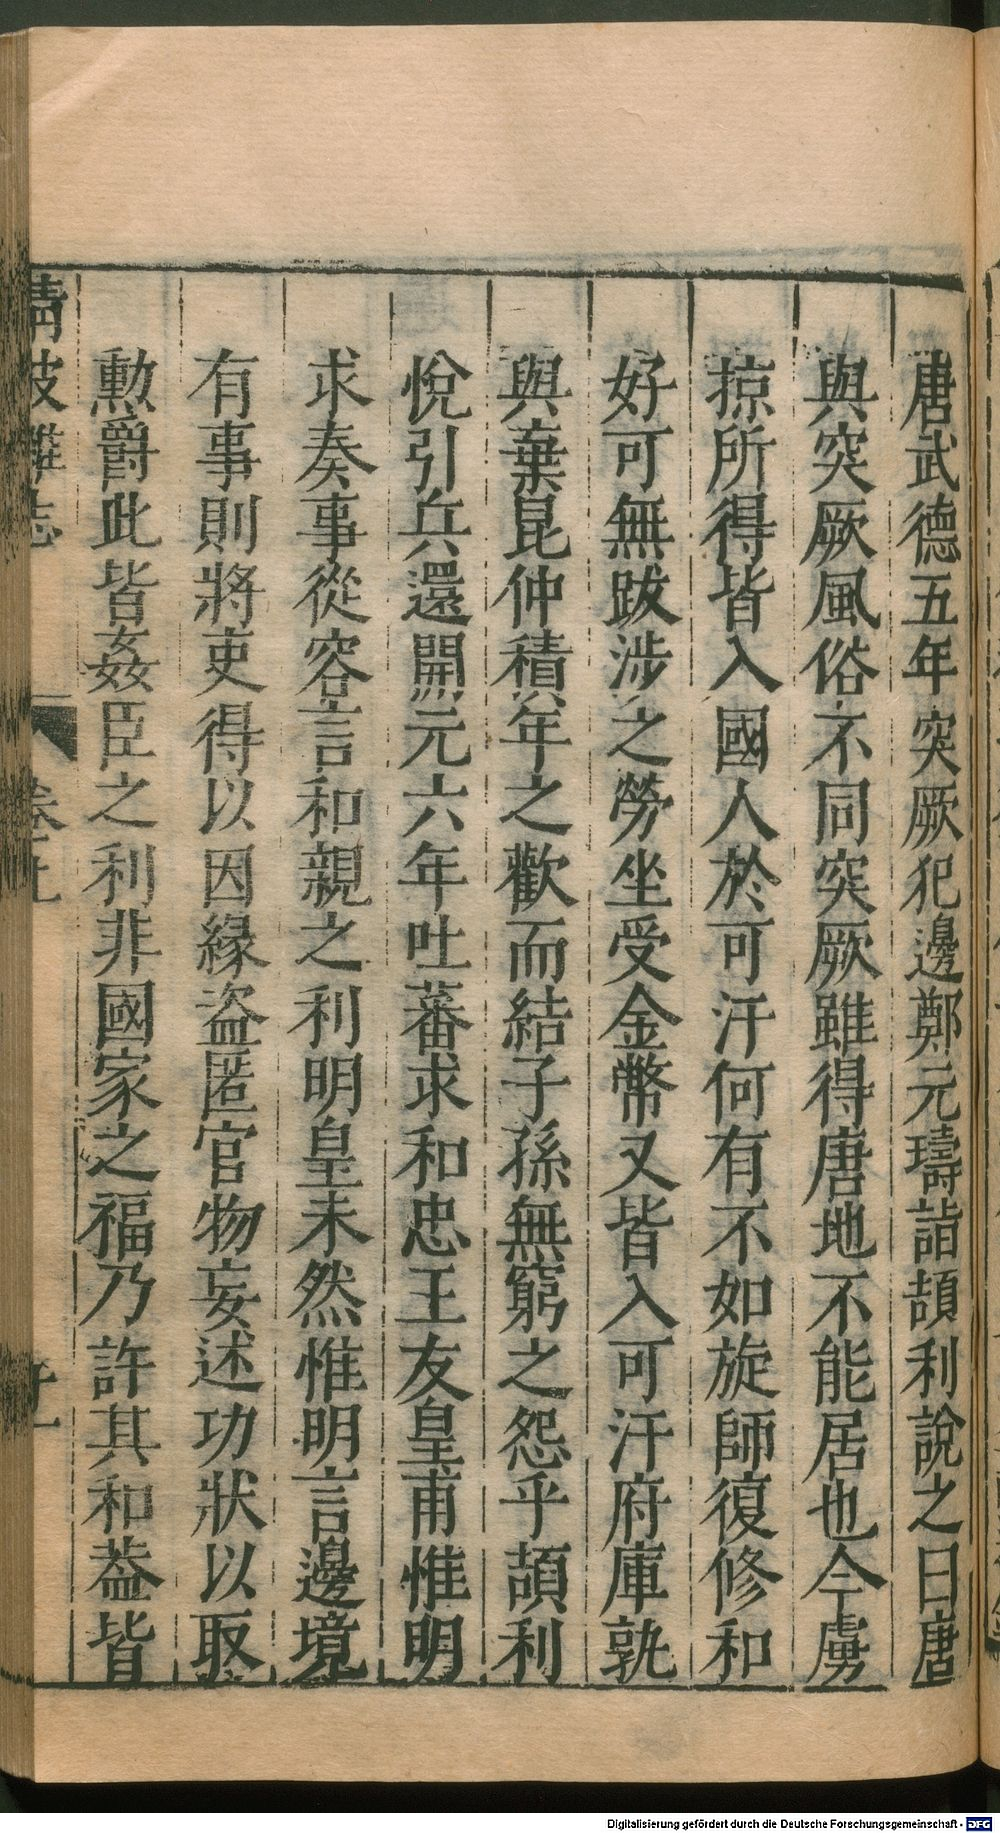 唐武德五年突厥犯邊鄭元璹詣頡利說之曰唐
與突厥風俗不同突厥雖得唐地不能居也今虜
掠所得皆入國人於可汗何有不如旋師復修和
好可無跋涉之勞坐受金幣又皆入可汗府庫孰
與棄昆仲積年之歡而結子孫無窮之怨乎頡利
悅引兵還開元六年吐蕃求和忠王友皇甫惟明
求奏事從容言和親之利明皇未然惟明言邊境
有事則將吏得以因緣盜匿官物妄述功狀以取
勲爵此皆姦臣之利非國家之福乃許其和葢皆
清波雜志
Digitalisierung gefördert durch die Deutsche Forschungsgemeinschaft - DFG